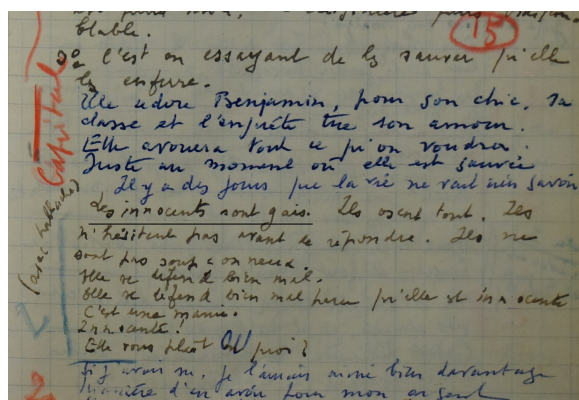 15
blable.
3° C'est en essayant de les sauver qu'elle
les enferre.
Elle adore Benjamin, pour son chic, sa
classe et l'enquête tue son amour.
Elle avouera tout ce qu'on voudra.
Juste au moment où elle est sauvée
Il y a des jours que la vie ne vaut
Capital
Les innocents sont gais. Ils osent tout. Ils
n'hésitent pas avant de répondre. Ils ne
sont pas soupçonneux.
Elle se défend bien mal.
Elle se défend bien mal parce qu'elle est innocente
C'est une manie.
Innocente!
Elle vous plaît ou quoi?
Si j'avais su, je l'aurais aimé bien davantage
d'un pour mon argent